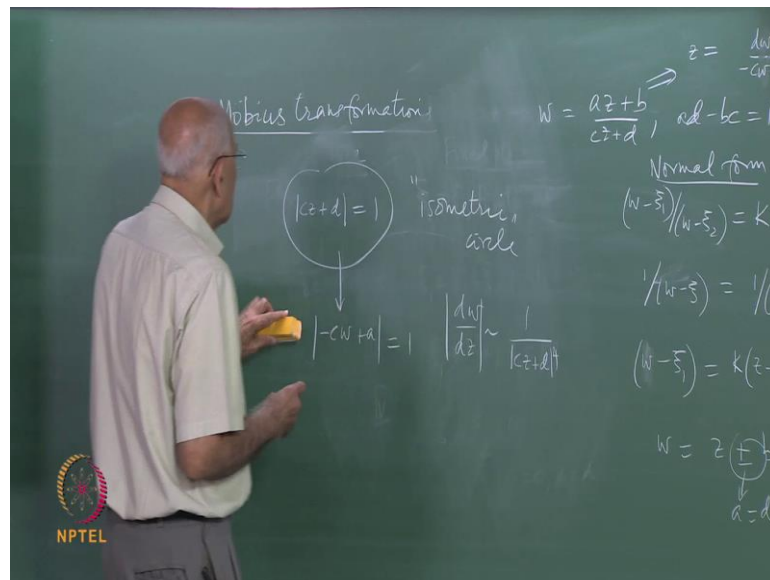 Möbius transformations
|cz+d| = 1
"isometric"
circle
|-cw+a| = 1
|dw/dz| ~ 1/|cz+d|⁴
z = dw
-cw
⇒
w = (az+b)/(cz+d), ad-bc = 1
Normal form
(w-ξ₁)/(w-ξ₂) = K
1/(w-ξ) = 1/(
(w-ξ₁) = K(z-
w = z ±
a = d
NPTEL